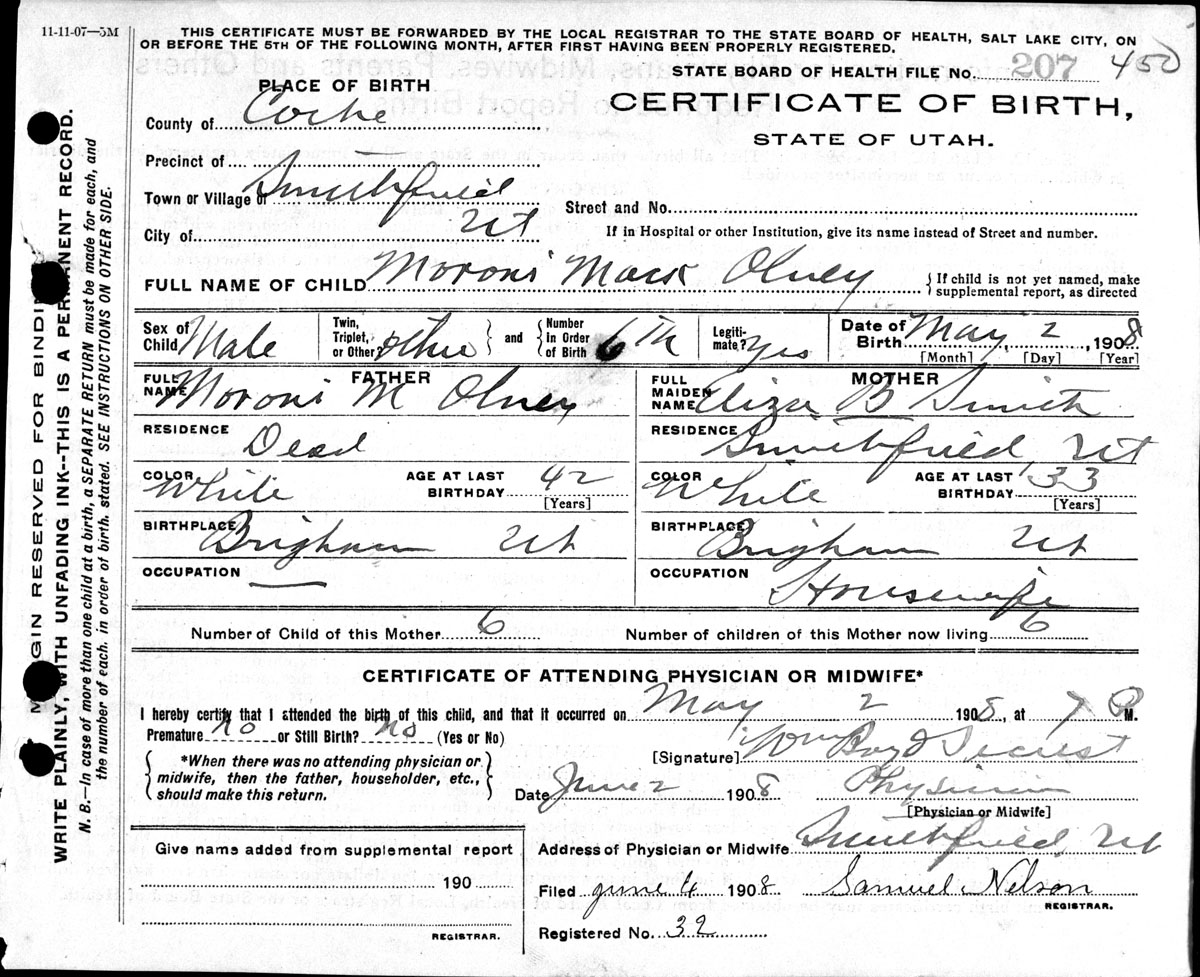 11-11-07—5M
THIS CERTIFICATE MUST BE FORWARDED BY THE LOCAL REGISTRAR TO THE STATE BOARD OF HEALTH, SALT LAKE CITY, ON
OR BEFORE THE 5TH OF THE FOLLOWING MONTH, AFTER FIRST HAVING BEEN PROPERLY REGISTERED.
STATE BOARD OF HEALTH FILE No. 207 450
PLACE OF BIRTH
CERTIFICATE OF BIRTH,
STATE OF UTAH.
County of Cache
Precinct of —
Town or Village of Smithfield
Street and No.
City of Ut
If in Hospital or other Institution, give its name instead of Street and number.
FULL NAME OF CHILD Moroni Mack Olney
{If child is not yet named, make
supplemental report, as directed
Sex of Child Male
Twin, Triplet, or Other? other
and
Number in Order of Birth 6th
Legiti-mate? Yes
Date of Birth May 2, 1908
[Month] [Day] [Year]
FATHER
FULL NAME Moroni M Olney
RESIDENCE Dead
COLOR White
AGE AT LAST BIRTHDAY 42
[Years]
BIRTHPLACE Brigham Ut
OCCUPATION —
MOTHER
FULL MAIDEN NAME Eliza B Smith
RESIDENCE Smithfield, Ut
COLOR White
AGE AT LAST BIRTHDAY 33
[Years]
BIRTHPLACE Brigham Ut
OCCUPATION Housewife
Number of Child of this Mother 6
Number of children of this Mother now living 6
CERTIFICATE OF ATTENDING PHYSICIAN OR MIDWIFE*
I hereby certify that I attended the birth of this child, and that it occurred on May 2 1908, at 7 P M.
Premature no or Still Birth? no (Yes or No)
{*When there was no attending physician or
midwife, then the father, householder, etc.,
should make this return.}
[Signature] Wm Boyd
Date June 2 1908 Physician
[Physician or Midwife]
Address of Physician or Midwife Smithfield, Ut
Give name added from supplemental report
190
REGISTRAR.
Filed June 4 1908 Samuel Nelson
REGISTRAR.
Registered No. 32
MARGIN RESERVED FOR BINDING
WRITE PLAINLY, WITH UNFADING INK--THIS IS A PERMANENT RECORD.
N. B.—In case of more than one child at a birth, a SEPARATE RETURN must be made for each, and
the number of each, in order of birth, stated. SEE INSTRUCTIONS ON OTHER SIDE.